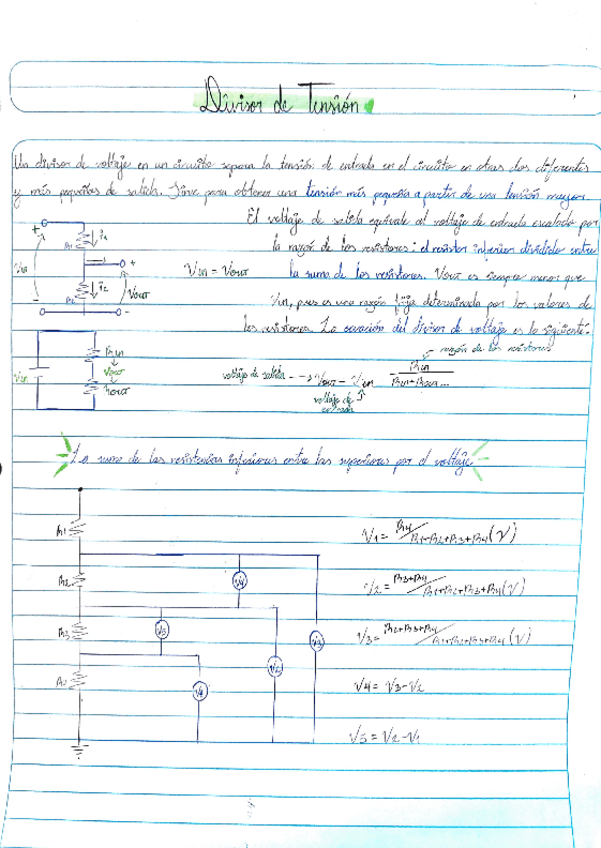 Divisor de Tensión
Un divisor de voltaje en un circuito separa la tensión de entrada en el circuito en otras dos diferentes
y más pequeñas de salida. Sirve para obtener una tensión más pequeña a partir de una tensión mayor.
El voltaje de salida equivale al voltaje de entrada escalado por
la razón de los resistores: el resistor inferior dividido entre
la suma de los resistores. Vout es siempre menor que
Vin, pues es una razón fija determinada por los valores de
los resistores. La ecuación del divisor de voltaje es la siguiente:
+ R1 i1
Vin
+
R2 i2 Vout
- -
Vin = Vout
razón de los resistores
Vin
Rin
Vout
Rout
voltaje de salida --> Vout = Vin
voltaje de
entrada
La suma de las resistencias inferiores entre las superiores por el voltaje
R1
R2
R3
V4
V3
V2
V1 = R4/R1+R2+R3+R4 (V)
V2 = R3+R4/R1+R2+R3+R4 (V)
V3 = R2+R3+R4/R1+R2+R3+R4 (V)
V4 = V3-V2
V5 = V2-V1